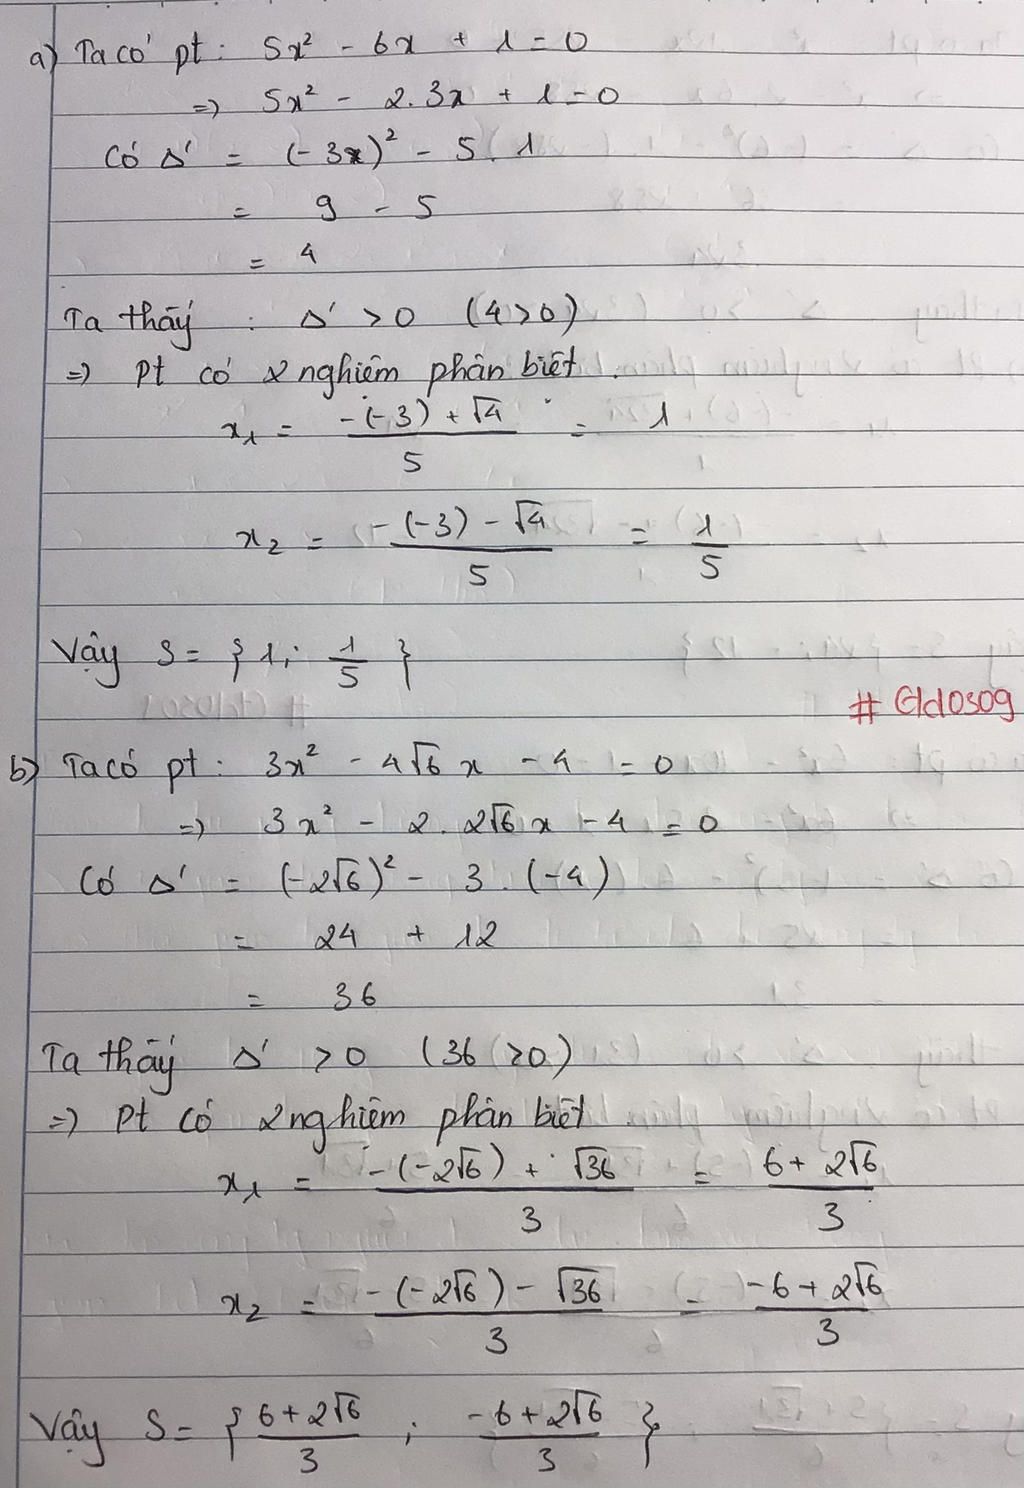 a) Ta có pt: 5x² - 6x + 1 = 0
=> 5x² - 2.3x + 1 = 0
Có Δ' = (-3x)² - 5.1
= 9 - 5
= 4
Ta thấy : Δ' > 0 (4>0)
=> Pt có 2 nghiệm phân biệt.
x₁ = (-(-3) + √4)/5 = 1
x₂ = (-(-3) - √4)/5 = 1/5
Vậy S = { 1; 1/5 }
# Gld0309
b) Ta có pt: 3x² - 4√6 x - 4 = 0
=> 3x² - 2.2√6 x - 4 = 0
Có Δ' = (-2√6)² - 3.(-4)
= 24 + 12
= 36
Ta thấy Δ' > 0 (36 > 0)
=> Pt có 2 nghiệm phân biệt
x₁ = (-(-2√6) + √36)/3 = (6 + 2√6)/3
x₂ = (-(-2√6) - √36)/3 = (-6 + 2√6)/3
Vậy S = { (6 + 2√6)/3 ; (-6 + 2√6)/3 }